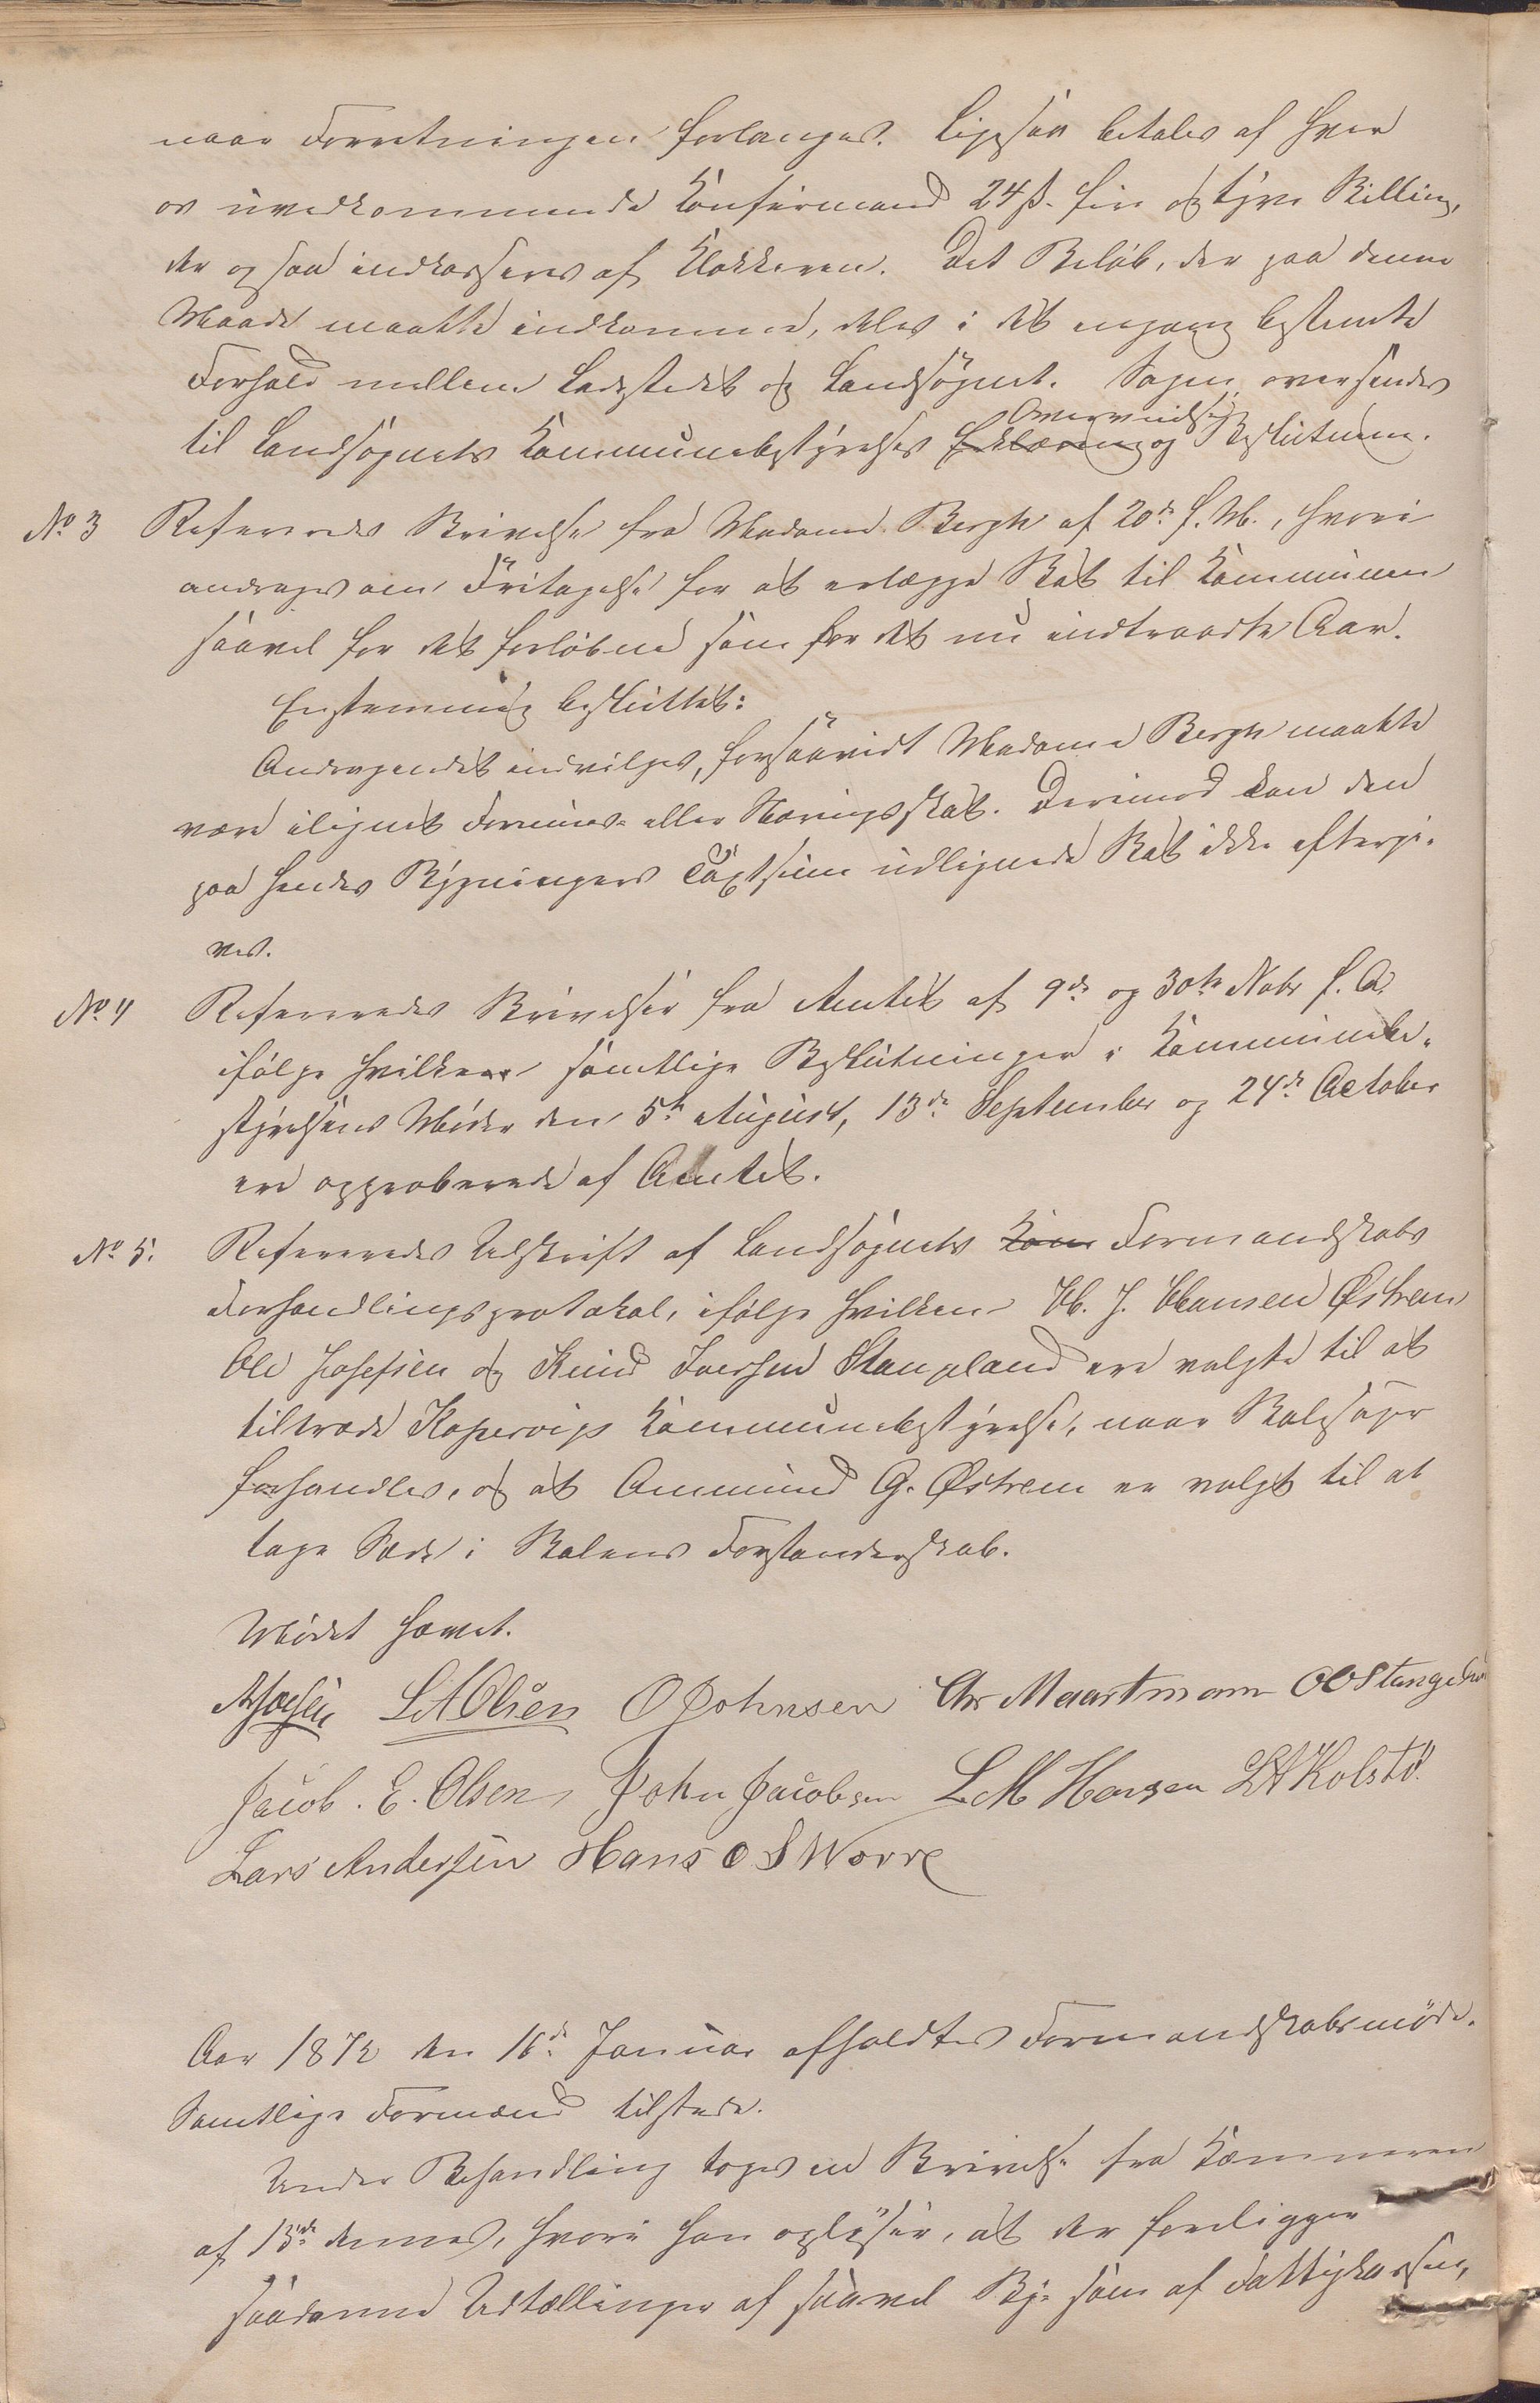 naar Forretningen forlanges. Ligesaa betales af hver
os uvedkommende Konfirmand 24 ß. fire og tyve Skilling,
der ogsaa indkasseres af Klokkeren. Det Beløb, der paa denne
Maade maatte indkomme, deles i det engang bestemte
Forhold mellem Ladestedet og Landsognet. Sagen oversendes
til Landsognets Kommunebestyrelses Erklæring og Beslutning.
No 3 Refereredes Skrivelse fra Madame Bergh af 20de f. M., hvori
andrages om Fritagelse for at erlægge Skat til Kommunen
saavel for det forløbne som for det nu indtraadte Aar.
Enstemmig besluttet:
Andragendet indvilges, forsaavidt Madame Bergh maatte
være ilignet Formues- eller Næringsskat. Derimod kan den
paa hendes Bygningers Taxtsum udlignede Skat ikke eftergi-
ves.
No 4 Refereredes Skrivelser fra Amtet af 9de og 30te Novbr f. A.
ifølge hvilke samtlige Beslutninger i Kommunebe-
styrelsens Møder den 5te August, 13de September og 24de October
ere approberede af Amtet.
No 5. Refereredes Udskrift af Landsognets Kom Formandskabs
Forhandlingsprotokol, ifølge hvilken M. J. Monsen Østrem
Ole Josefsen og Knud Iversen Stangland ere valgte til at
tiltræde Kopervigs Kommunebestyrelse, naar Skolesager
forhandles, og at Ammund G. Østrem er valgt til at
tage Sæde i Skolens Forstanderskab.
Mødet hævet.
L A Olsen O Johnsen Chr Maartmann O O Stangeland
Jacob. E. Olsen John Jacobsen L. M Hansen L A Kolstø.
Lars Andersen Hans O S Worre
Aar 1872 den 16de Januar afholdtes Formandskabsmøde.
Samtlige Formænd tilstede.
Under Behandling toges en Skrivelse fra Kæmneren
af 13de dennes, hvori han oplyser, at der foreligger
saadanne Udtællinger af saavel By- som af Fattigkassen,